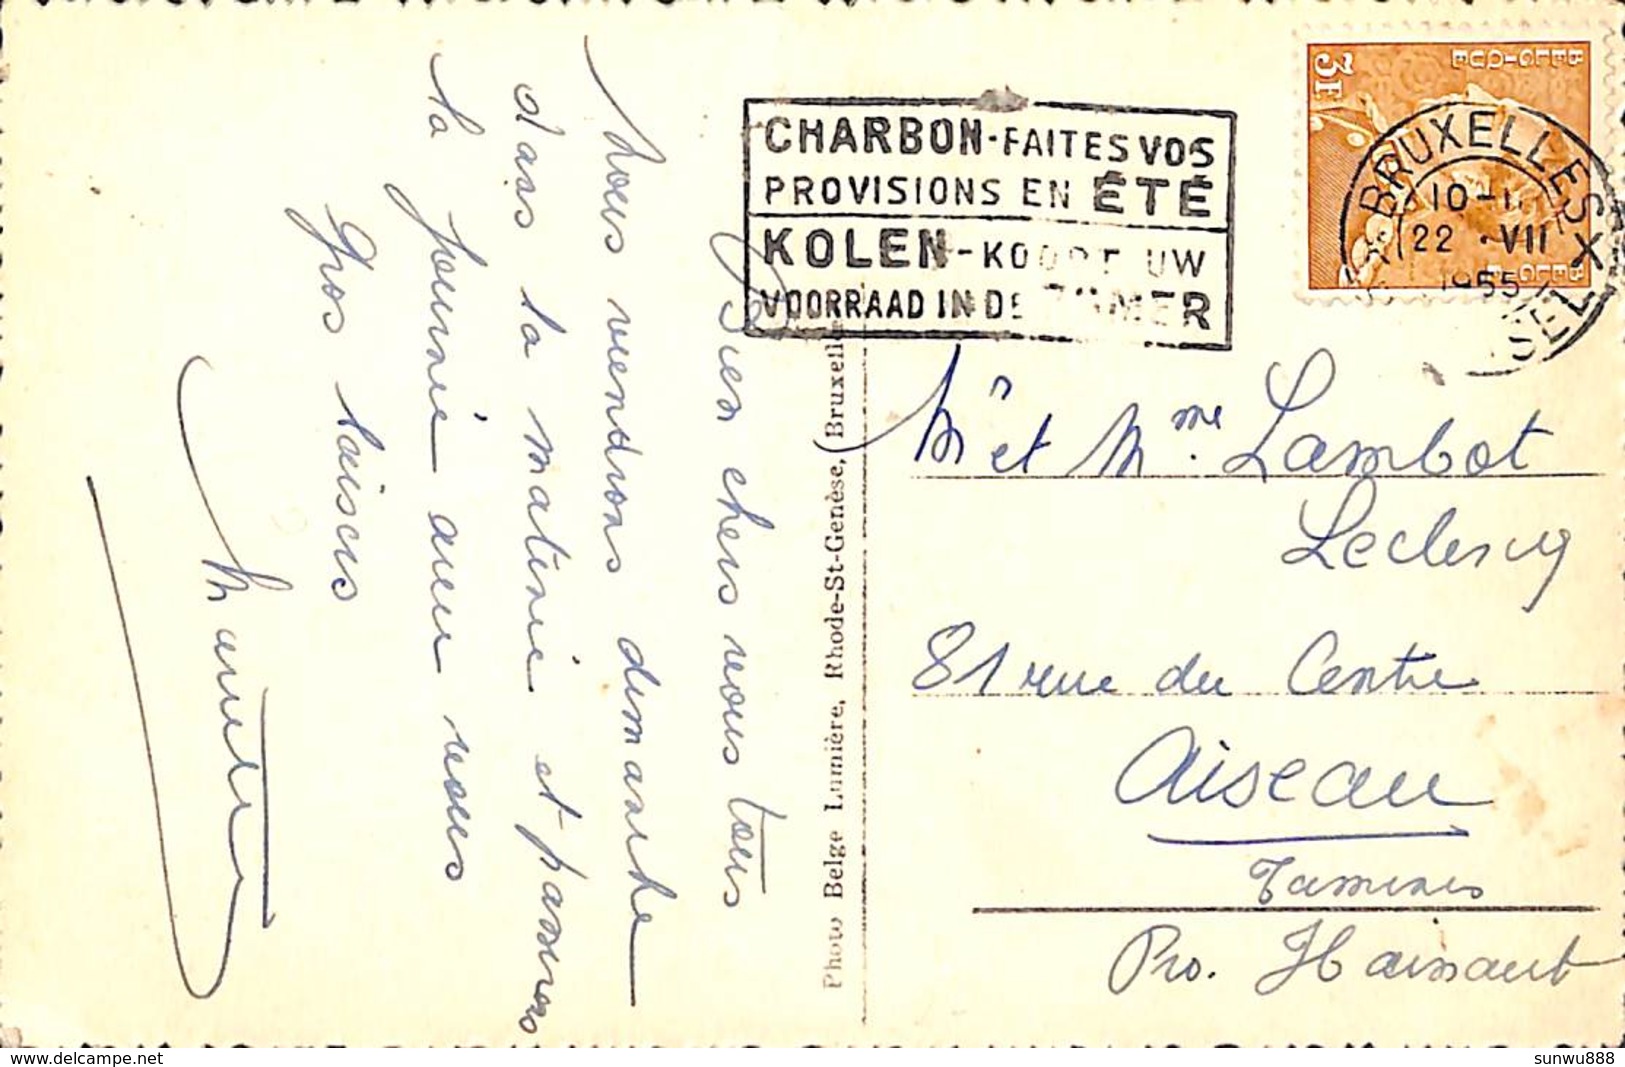 Bien chers vous tous
Nous viendrons dimanche
dans la matinée et passerons
la journée avec vous
Gros baisers
Photo Belge Lumière, Rhode-St-Genèse, Bruxelles
CHARBON-FAITES VOS
PROVISIONS EN ÉTÉ
KOLEN-KOOPT UW
VOORRAAD IN DE ZOMER
BELGIQUE
3F
BELGIE
BRUXELLES X
10-11
22 · VII
1955
BRUSSEL
Mr et Mme. Lambot
Leclercq
81 rue du Centre
Aiseau
Tamines
Pro. Hainaut
sunwu888